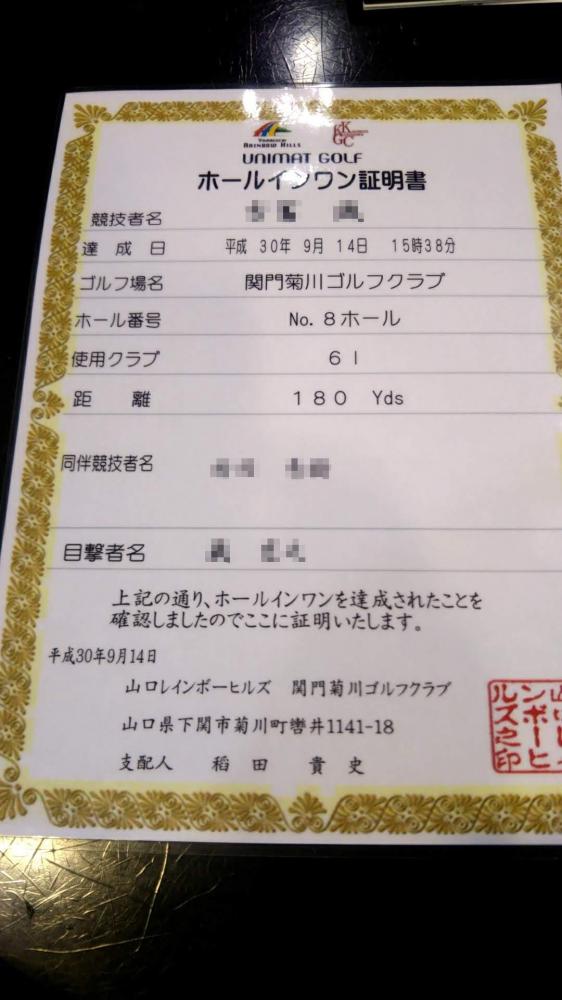 YAMAGUCHI
RAINBOW HILLS
KK
GC
UNIMAT GOLF
ホールインワン証明書
競技者名
達成日 平成 30年 9月 14日 15時38分
ゴルフ場名 関門菊川ゴルフクラブ
ホール番号 No.8ホール
使用クラブ 6I
距離 180 Yds
同伴競技者名
目撃者名
上記の通り、ホールインワンを達成されたことを
確認しましたのでここに証明いたします。
平成30年9月14日
山口レインボーヒルズ 関門菊川ゴルフクラブ
山口県下関市菊川町轡井1141-18
支配人 稲田 貴史
ンボーヒ
ルズ之印